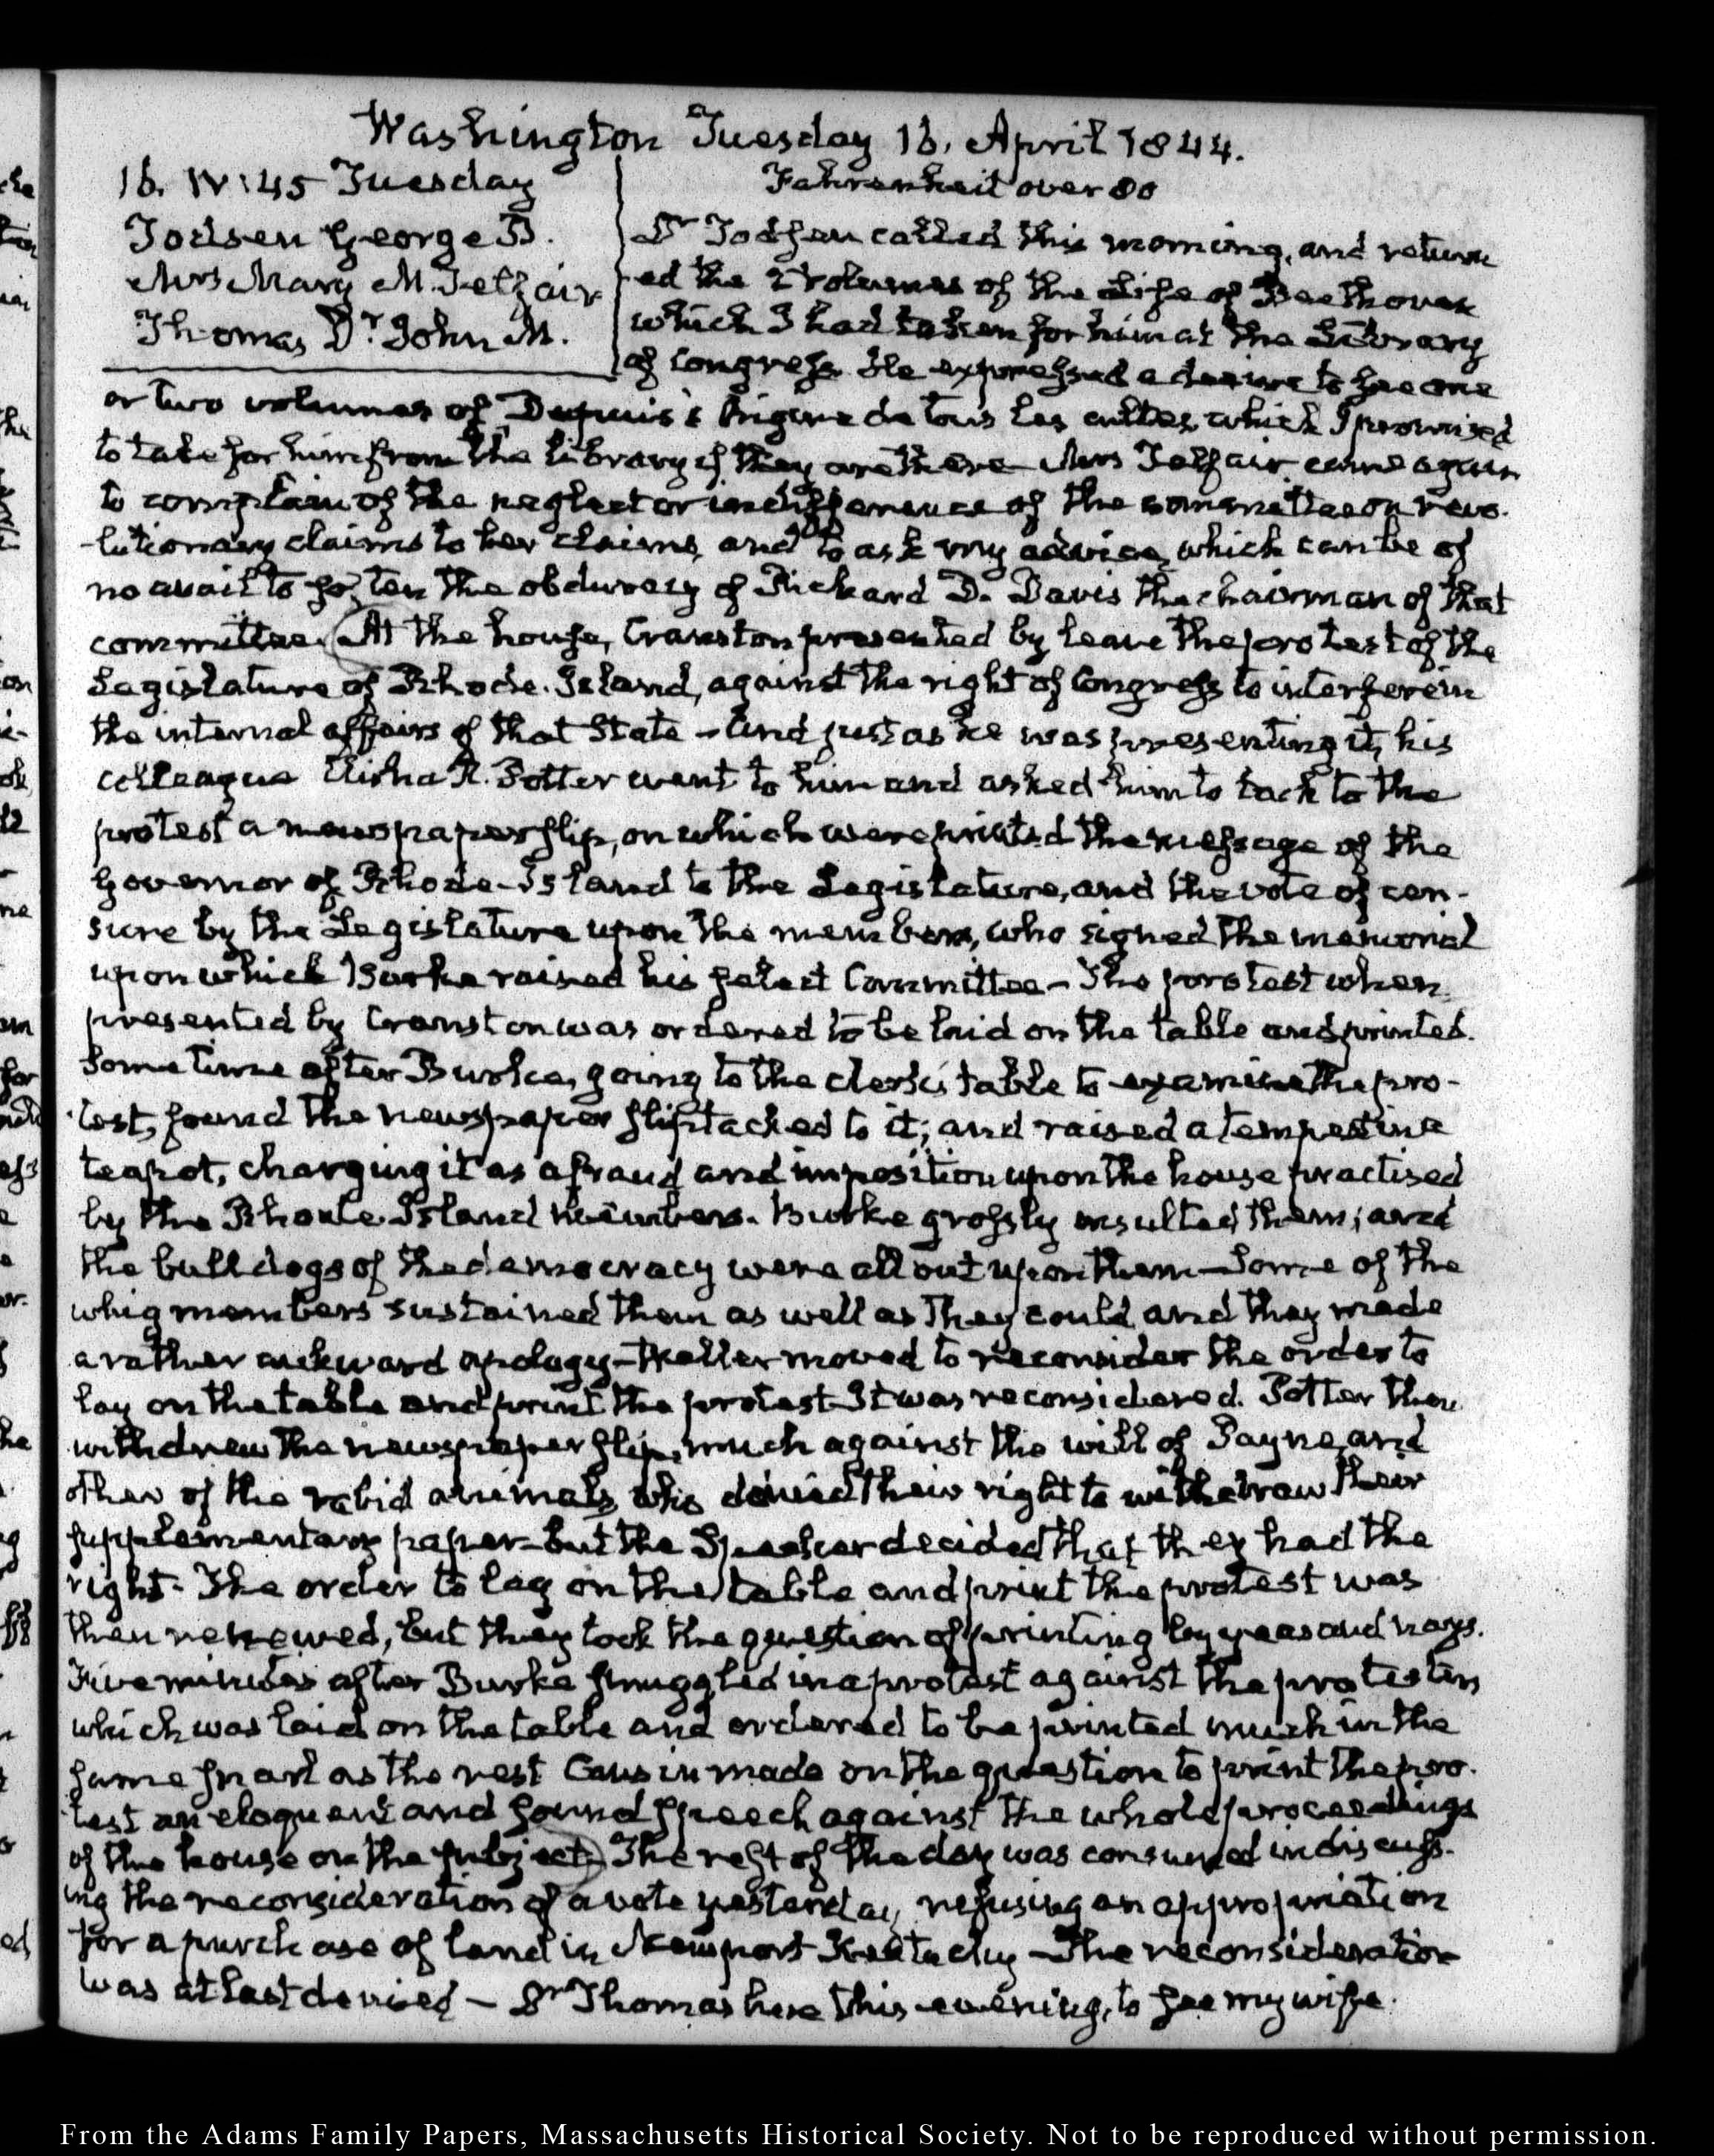 Washington Tuesday 16. April 1844.
16. IV:45 Tuesday
Todsen George P.
Mrs Mary M. Telfair
Thomas Dr. John M.
Fahrenheit over 80
Dr Todsen called this morning, and return
ed the 2 volumes of the Life of Beethoven
which I had taken for him at the Library
of Congress. He expressed a desire to see one
or two volumes of Dupuis's Origine de tous les cultes, which I promised
to take for him from the library if they are there— Mrs Telfair came again
to complain of the neglect or indifference of the committee on revo-
-lutionary claims to her claims, and to ask my advice, which can be of
no avail to soften the obduracy of Richard D. Davis the chairman of that
committee. At the house, Cranston presented by leave the protest of the
Legislature of Rhode-Island, against the right of Congress to interfere in
the internal affairs of that State— And just as he was presenting it, his
colleague Elisha R. Potter went to him and asked him to tack to the
protest a newspaper slip, on which were printed the message of the
Governor of Rhode-Island to the Legislature, and the vote of cen-
sure by the Legislature upon the members, who signed the memorial
upon which Burke raised his select Committee— The protest when
presented by Cranston was ordered to be laid on the table and printed.
Some time after Burke, going to the clerk's table to examine the pro-
test, found the newspaper slip tacked to it; and raised a tempest in a
teapot, charging it as a fraud and imposition upon the house practised
by the Rhode-Island members. Burke grossly insulted them; and
the bulldogs of the democracy were all out upon them— Some of the
whig members sustained them as well as they could, and they made
a rather awkward apology— Potter moved to reconsider the order to
lay on the table and print the protest— It was reconsidered. Potter then
withdrew the newspaper slip, much against the will of Payne, and
other of the rabid animals, who denied their right to withdraw their
supplementary paper— but the Speaker decided that they had the
right— The order to lay on the table and print the protest was
then renewed, but they took the question of printing by yeas and nays.
Five minutes after Burke smuggled in a protest against the protestors
which was laid on the table and ordered to be printed much in the
same snarl as the rest Causin made on the question to print the pro-
test an eloquent and sound speech against the whole proceedings
of the house on the subject. The rest of the day was consumed in discuss-
ing the reconsideration of a vote yesterday, refusing an appropriation
for a purchase of land in Newport Kentucky— The reconsideration
was at last denied— Dr Thomas here this evening, to see my wife.
From the Adams Family Papers, Massachusetts Historical Society. Not to be reproduced without permission.